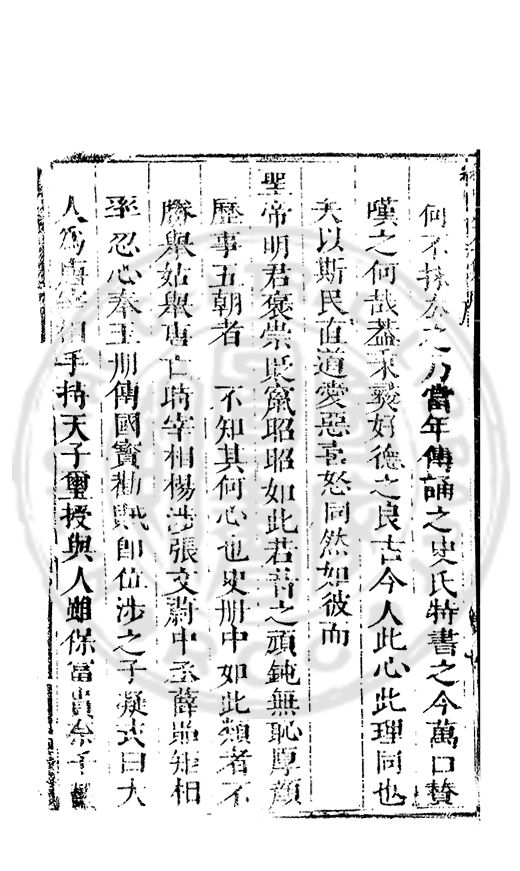 何不抹左之乃當年傳誦之史氏特書之今萬口贊
嘆之何哉葢秉彝好德之良古今人此心此理同也
夫以斯民直道愛惡喜怒同然如彼而
聖帝明君褒崇貶竄昭昭如此君吾之頑鈍無恥厚顔
歷事五朝者 不知其何心也史册中如此類者不
勝舉姑舉唐亡時宰相楊涉張文蔚中丞薛 矩相
率忍心奉王册傳國寶勸賊即位涉之子凝式曰大
人為唐宰相手持天子璽授與人雖保富貴奈千